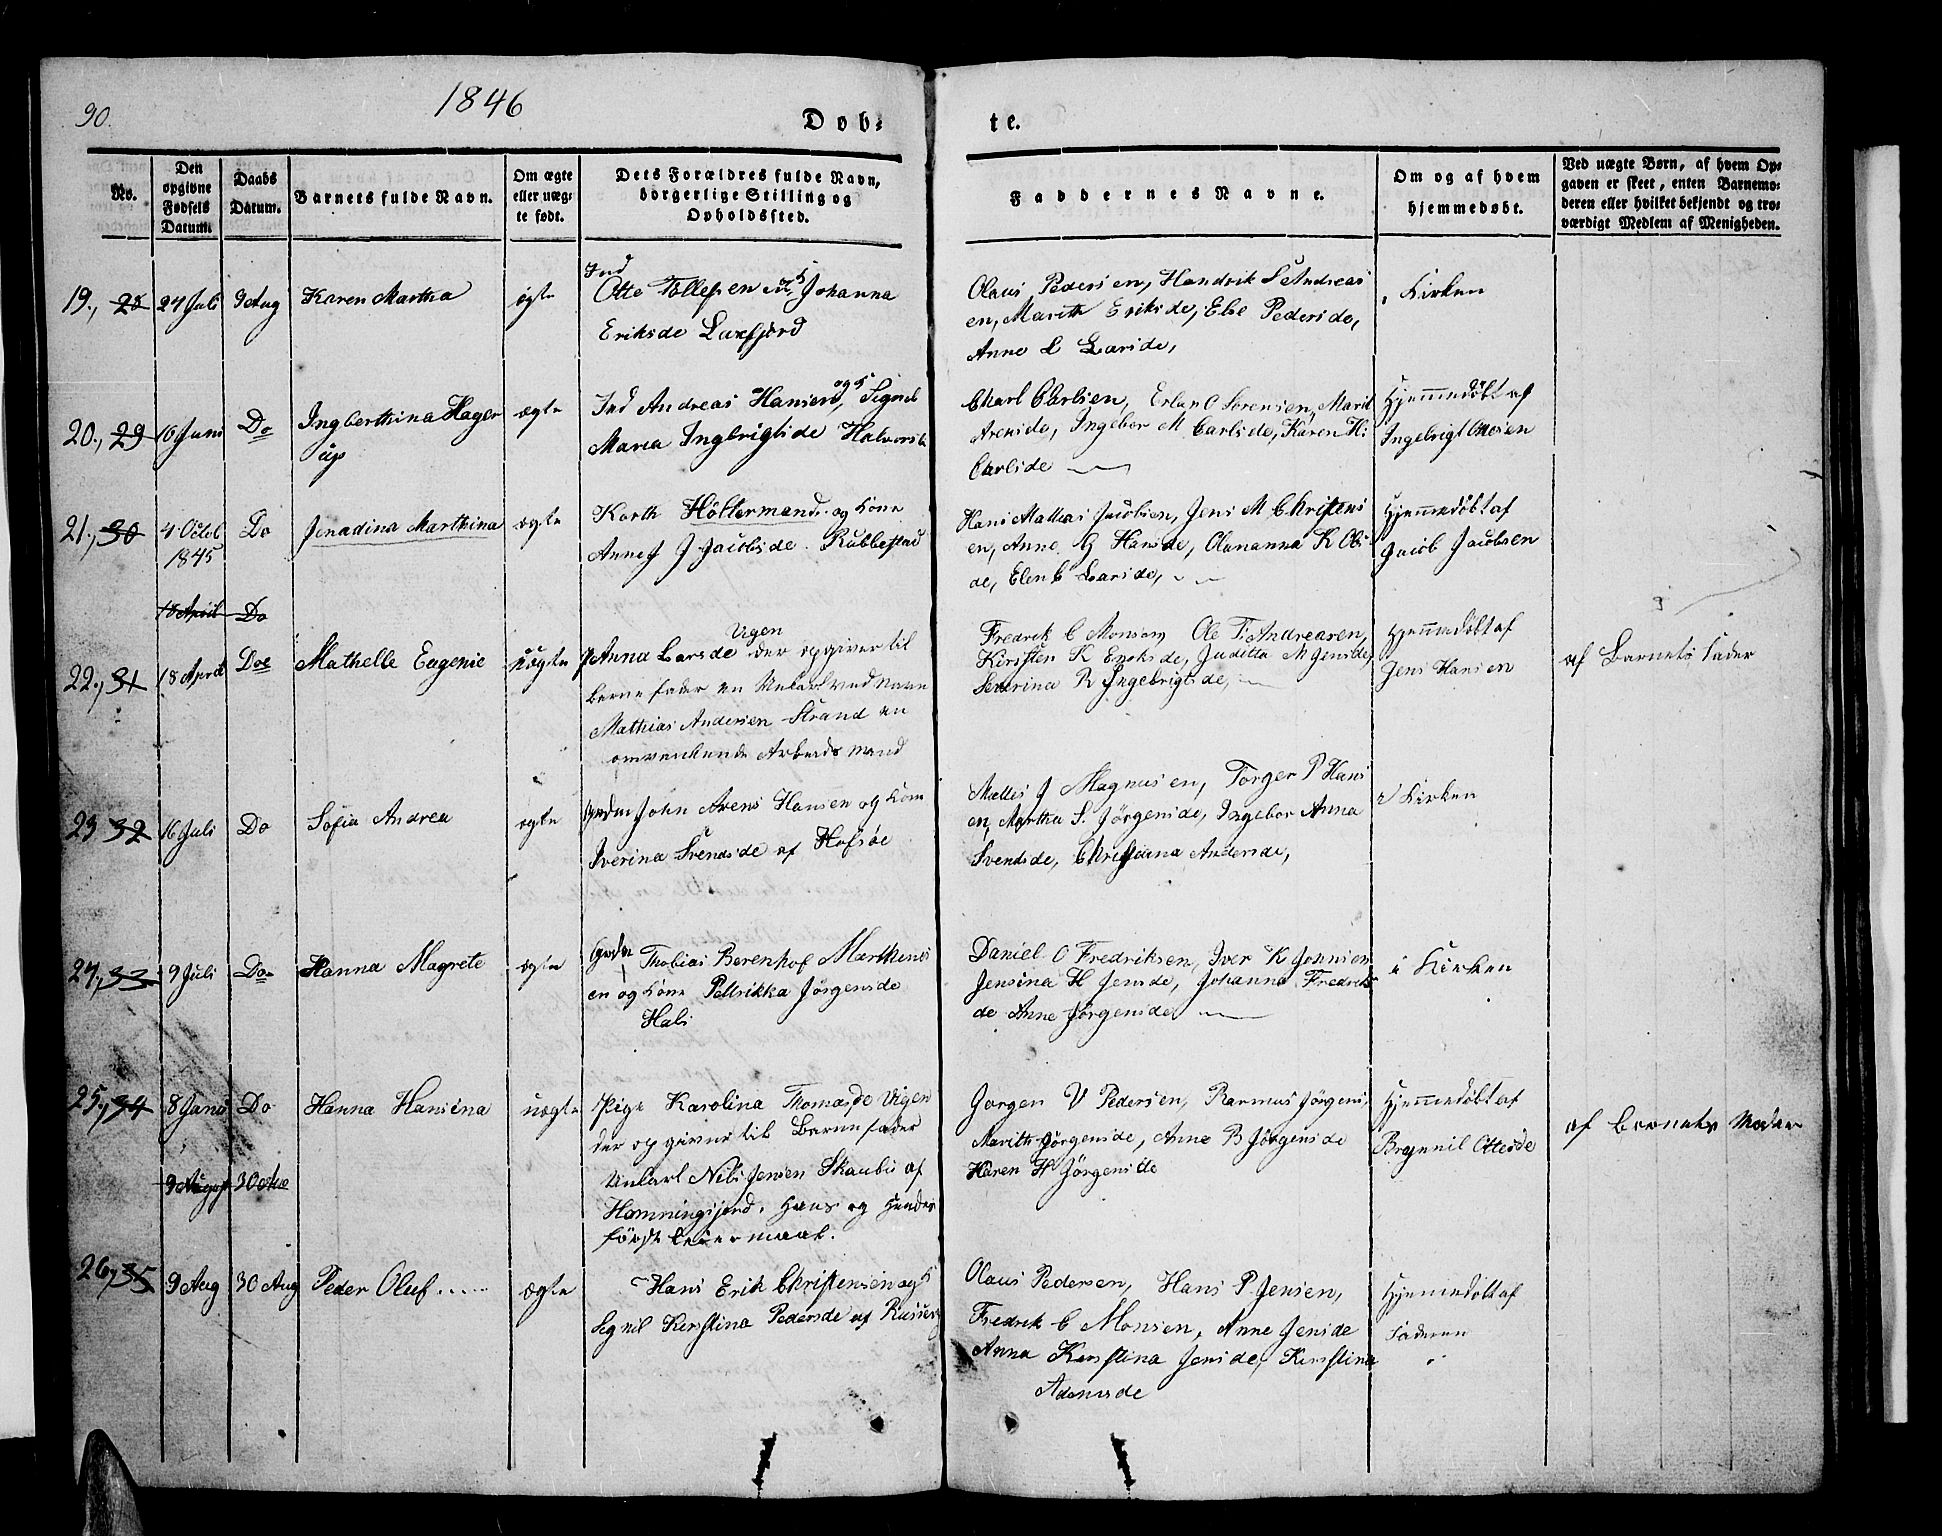 90.
1846
Døb-
te.
No.
Den
opgivne
Fødsels
Datum.
Daabs
Datum.
Barnets fulde Navn.
Om ægte
eller uæg-
te født.
Dets Forældres fulde Navn,
borgerlige Stilling og
Opholdssted.
Faddernes Navne.
Om og af hvem
hjemmedøbt.
Ved uægte Børn, af hvem Op-
gaven er skeet, enten Barnemo-
deren eller hvilket bekjendt og tro-
værdigt Medlem af Menigheden.
19., 28 24 Juli 9 Aug Karen Martha ægte
Ind
Otte Tollefsen og K Johanna
Eriksde Laxfjord
Olaus Pedersen, Handrik S Andreas
en, Marith Eriksde, Else Pedersde,
Anne L Larsde,
i Kirken
20., 29 16 Juni Do Ingberthina Hager
up
ægte
Ind Andreas Hansen og K Signel
Maria Ingbrigtsde
Charl Carlsen, Erland Sørensen, Marit
Arensde, Ingebor M Carlsde, Karen H:
Carlsde
Hjemmedøbt af
Ingebrigt Ottesen
21., 30 4. Octob
1845
Do Jenadina Marthina ægte
Korth Holtermand og Kone
Anne J Jacobsde. Rubbestad
Hans Mathias Jacobsen, Jens M Christens
en, Anne G Hansde, Olananna K Ols
de, Elen C Larsde,
Hjemmedøbt af
Jacob Jacobsen
18 April Do
22., 31 18 April Do Mathelle Eugenie uægte
Vigen
P Anna Larsde der opgiver til
Barnefader en Unkarl ved Navn
Mathias Andersen Strand en
omvankende Arbeidsmand
Fredrik C Monsen Ole T. Andreasen,
Kirsten K Eriksde, Juditta M Jensde,
Severina R Ingebrigtsde,
Hjemmedøbt af
Jens Hansen
af Barnets Fader
23 32 16 Juli Do Sofia Andrea ægte
John Arens Hansen og Kone
Iverina Svendsde af Hofsøe
J Magnusen, Torger P Hans
en, Martha S. Jørgensde, Ingebor Anna
Svendsde, Christiana Andersde,
i Kirken
24., 33 9 Juli Do Hanna Magrete ægte
Thobias Berenhof Marthenes
en og Kone Petrikka Jørgensde
Daniel O Fredriksen, Iver K Jonnsen
Jensina H Jensde, Johanna Fredriks
de Anne Jørgensde
i Kirken
25., 34 8 Janu Do Hanna Hansina uægte
Pige Karolina Thomasde Vigen
der opgiver til Barnefader
Unkarl Nils Jensen Skaubu af
Hemmingsjord. Hans og Hendes
første Leiermaal.
Jørgen V Pedersen, Rasmus Jørgens.
Marith Jørgensde, Anne B Jørgensde
Karen H Jørgensde
Hjemmedøbt af
Brynnil Ottesde
af Barnets Moder
9 August 30
26, 35 9 Aug 30 Aug Peder Oluf ægte
Hans Erik Christensen og K
Segnil Kerstina Pedersde af
Olaus Pedersen, Hans P. Jensen,
Fredrik C Monsen, Anne Jensde
Anna Kerstina Jensde, Kerstina
Adamsde
Hjemmedøbt af
Faderen